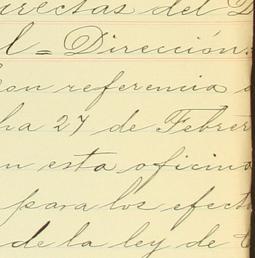 irectas del D
l = Dirección.
on referencia a
ha 27 de Febrer
n esta oficina
para los efect
de la ley de